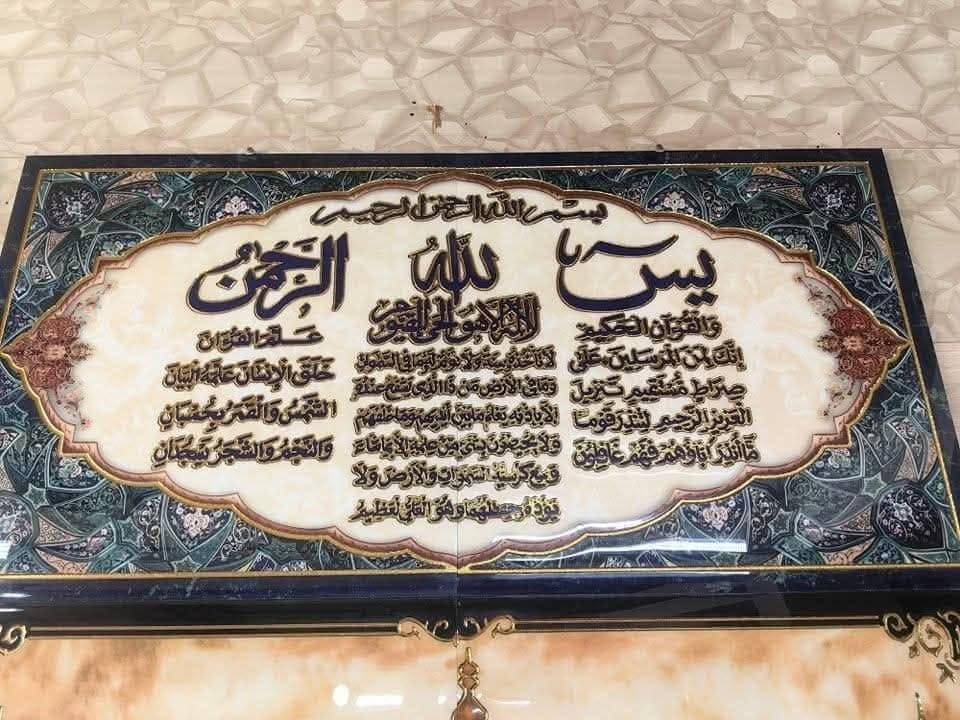 بسم الله الرحمن الرحيم
يس
والقرآن الحكيم
إنك لمن المرسلين على
صراط مستقيم تنزيل
العزيز الرحيم لتنذر قوما
ما أنذر آباؤهم فهم غافلون
الله
لا إله إلا هو الحي القيوم
لا تأخذه سنة ولا نوم له ما في السموات
وما في الأرض من ذا الذي يشفع عنده
إلا بإذنه يعلم ما بين أيديهم وما خلفهم
ولا يحيطون بشيء من علمه إلا بما شاء
وسع كرسيه السموات والأرض ولا
يؤده حفظهما وهو العلي العظيم
الرحمن
علم القرآن
خلق الإنسان علمه البيان
الشمس والقمر بحسبان
والنجم والشجر يسجدان